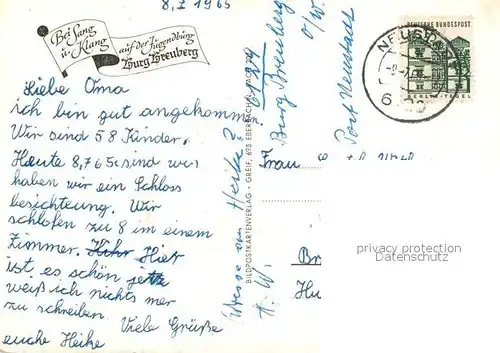 8,7 1965
Bei Sang
u. Klang
auf der Jugendburg
Burg Breuberg
Liebe Oma
ich bin gut angekommen.
Wir sind 58 Kinder.
Heute 8,7,65 sind wir
haben wir ein Schloss
besichteung. Wir
schlofen zu 8 im einem
Zimmer. Hier
ist es schön jetz
weiß ich nichts mer
zu schreiben. Viele Grüße
euche Heike
BILDPOSTKARTENVERLAG · GREIF, 693 EBERBACH/N.
Adresse von Heike?
H. W. 6129
Burg Breuberg
o/W.
Post Neustadt
DEUTSCHE BUNDESPOST
NEUSTADT
Frau
Br
Hu
privacy protection
Datenschutz